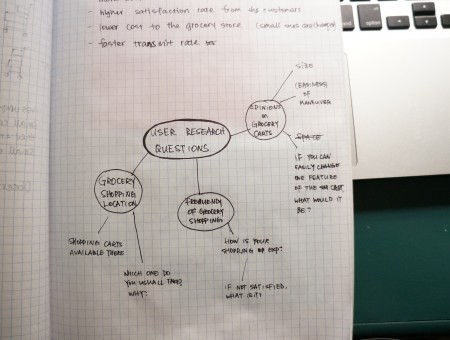 - higher satisfaction rate from the customers
- lower cost to the grocery store (small ones are cheaper)
- faster transit rate
USER RESEARCH
QUESTIONS
OPINIONS
ON
GROCERY
CARTS
SIZE
(EASINESS)
OF
MANEUVER
SPACE
IF YOU CAN
EASILY CHANGE
ONE FEATURE
OF THE CART
WHAT WOULD IT
BE?
GROCERY
SHOPPING
LOCATION
SHOPPING CARTS
AVAILABLE THERE
WHICH ONE DO
YOU USUALLY TAKE?
WHY?
FREQUENCY
OF GROCERY
SHOPPING
HOW IS YOUR
SHOPPING EXP?
IF NOT SATISFIED,
WHAT IS IT?